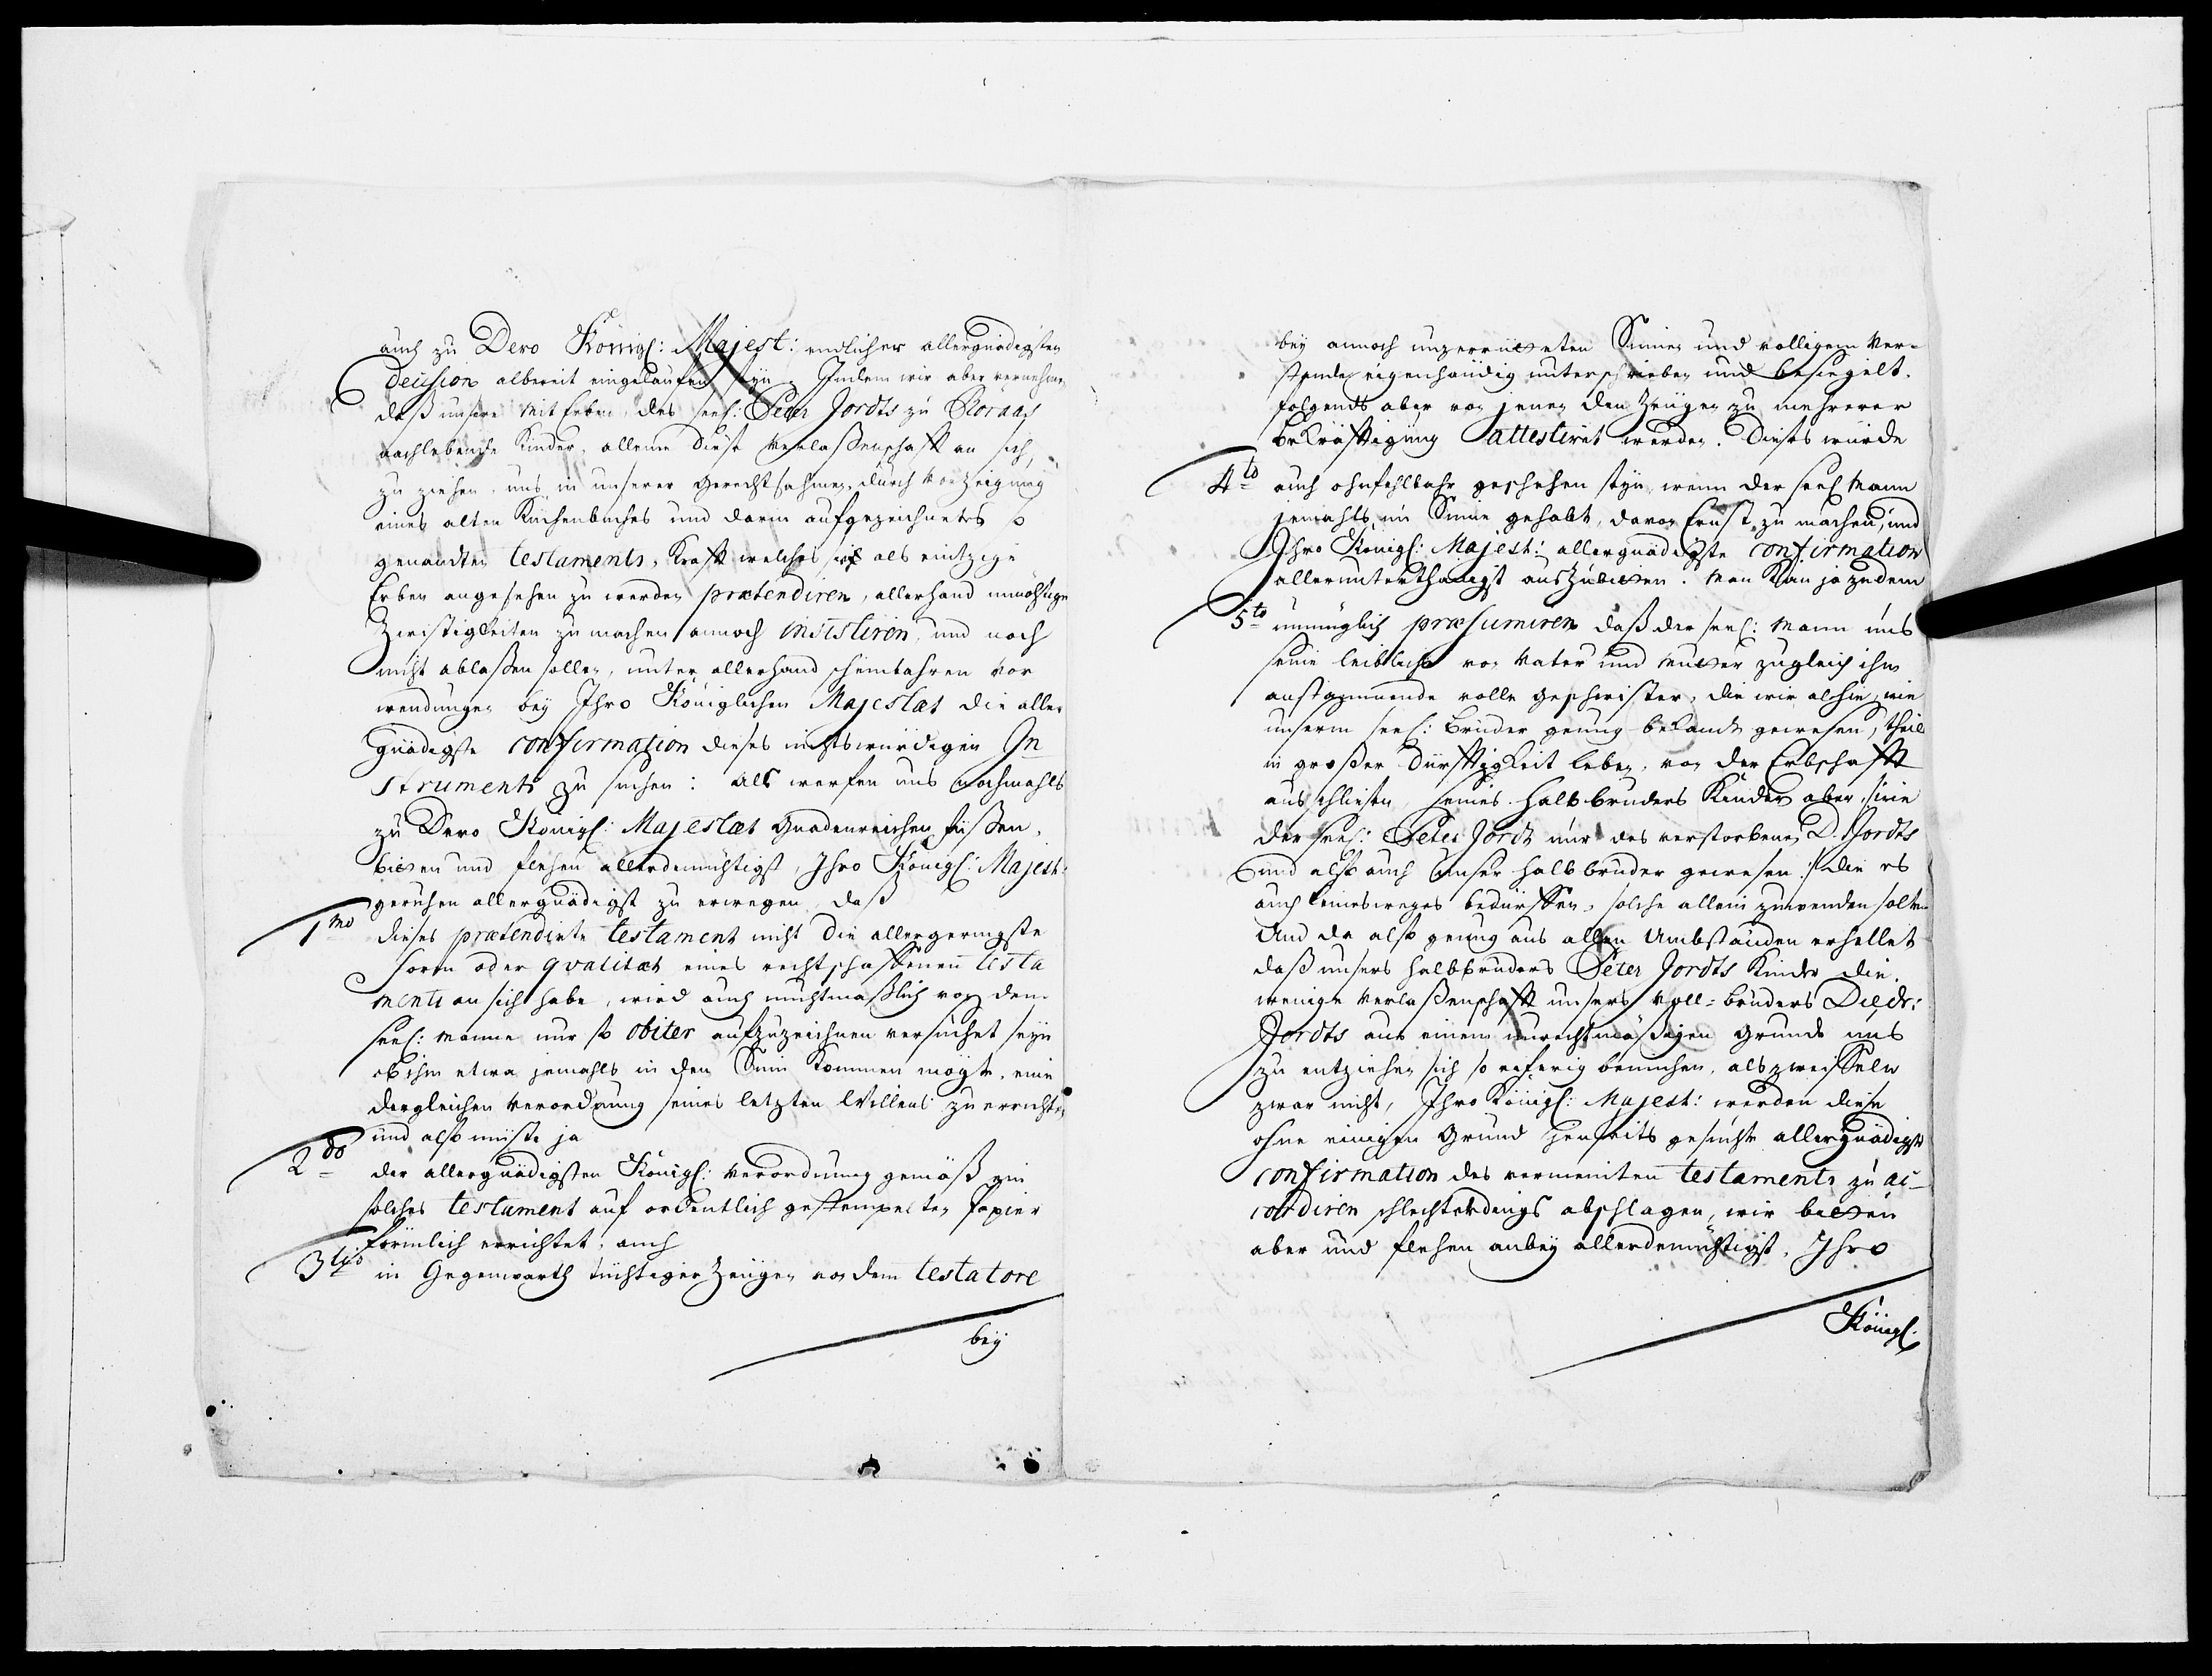 auch zu Dero Königl: Majest: endlicher allergnädigsten
decision albereit eingelaufen seyn. Indem wir aber vernehmen
daß unsere Mit Erben, des seel: Peter Jordts zu Koraas
nachlebende Kinder, alleine diese Verlaßenschafft an sich
zu ziehen, uns in unserer Gerechtsahmen, durch Vorzeigung
eines alten Küchenbuches und darin aufgezeichnetes so
genandten testaments, Krafft welches sie als eintzige
Erben angesehen zu werden prætendiren, allerhand unnöhtige
Zwistigkeiten zu machen annoch insistiren, und noch
nicht ablaßen sollen, unter allerhand scheinbahren Vor
wendungen bey Ihro Königlichen Majestæt die aller
gnädigste confirmation dieses nichtswürdigen In
struments zu suchen: als werfen uns nochmahls
zu Dero Königl: Majestæt Gnadenreichen füßen,
bitten und flehen allerdemühtigst, Ihro Königl: Majest:
geruhen allergnädigst zu erwegen, daß
1mo dieses prætendirte testament nicht die allergeringste
form oder qvalitæt eines rechtschaffenen testa
ments an sich habe, wird auch muhtmaßlich von dem
seel: Manne nur so obiter aufzuzeichnen versuchet seyn
ob ihm etwa jemahls in den Sinn kommen mögte, eine
dergleichen Verordnung seines letzten Willens zu errichten
und also müste ja
2do der allergnädigsten Königl: Verordnung gemäß ein
solches testament auf ordentlich gestempelten Papier
förmlich errichtet, auch
3tio in Gegenwarth tüchtiger Zeugen von dem testatore
bey
bey annoch unzerrütteten Sinnen und volligem Ver-
stande eigenhändig unterschrieben und besiegelt.
folgends aber von jenen den Zeugen zu mehrerer
bekräfftigung attestiret werden. Dieses würde
4to auch ohnfehlbahr geschehen seyn, wenn der seel Mann
jemahls im Sinne gehabt, davon Ernst zu machen, und
Ihro Königl: Majest: allergnädigste confirmation
allerunterthänigst auszubitten. Man kan ja zudem
5to unmüglich præsumiren daß der seel: Mann uns
seine leibliche von Vater und Mutter zugleich ihm
anstammende volle Geschwister, die wir alhie, wie
unserm seel: Bruder genug bekandt gewesen, theils
in großer Dürfftigkeit leben, von der Erbschafft
ausschließen, seines halb bruders Kinder aber, wie
der seel: Peter Jordt nur des verstorbenen D. Jordts
und also auch unser halb bruder gewesen :/ die es
auch keinesweges bedürffen, solche allein zuwenden solte.
Und da also genug aus allen Umbständen erhellet
daß unsers halbbruders Peter Jordts Kinder die
wenige Verlaßenschafft unsers Voll-bruders Diedr:
Jordts aus einem unrechtmäßigen Grunde uns
zu entziehen sich so eiferig bemühen, als zweiffeln
zwar nicht, Ihro Königl: Majest: werden diese
ohne einigen Grund jenseits gesuchte allergnädigste
confirmation des vermeinten testaments zu ac-
cordiren schlechterdings abschlagen, wir bitten
aber und flehen anbey allerdemühtigst, Ihro
Königl: